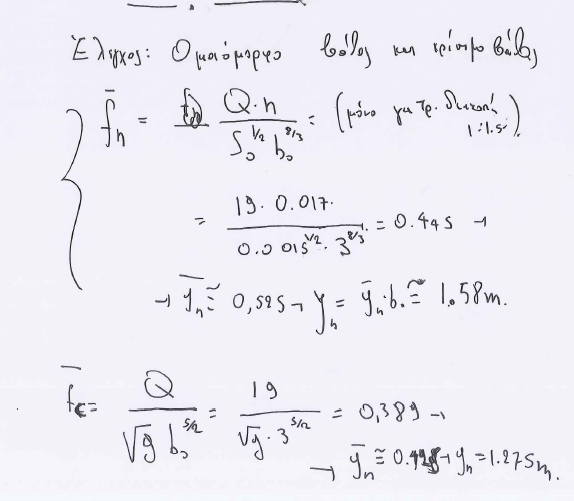 Έλεγχος: Ομοιόμορφο βάθος και κρίσιμο βάθος
f̄n = Q·n / (S₀^1/2 b₀^8/3) = (μόνο για τρ. διατομή 1:1.5)
= 19·0.017 / (0.0015^1/2 · 3^8/3) = 0.445 →
→ ȳn ≅ 0,525 → yn = ȳn·b₀ ≅ 1.58m.
f̄c = Q / (√g b₀^5/2) = 19 / (√g · 3^5/2) = 0,389 →
→ ȳn ≅ 0.425 → yn = 1.275m.